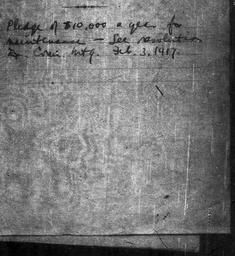 Pledge of $10,000 a year for
maintenance — See resolution
Com. Mtg. Feb. 3, 1917.